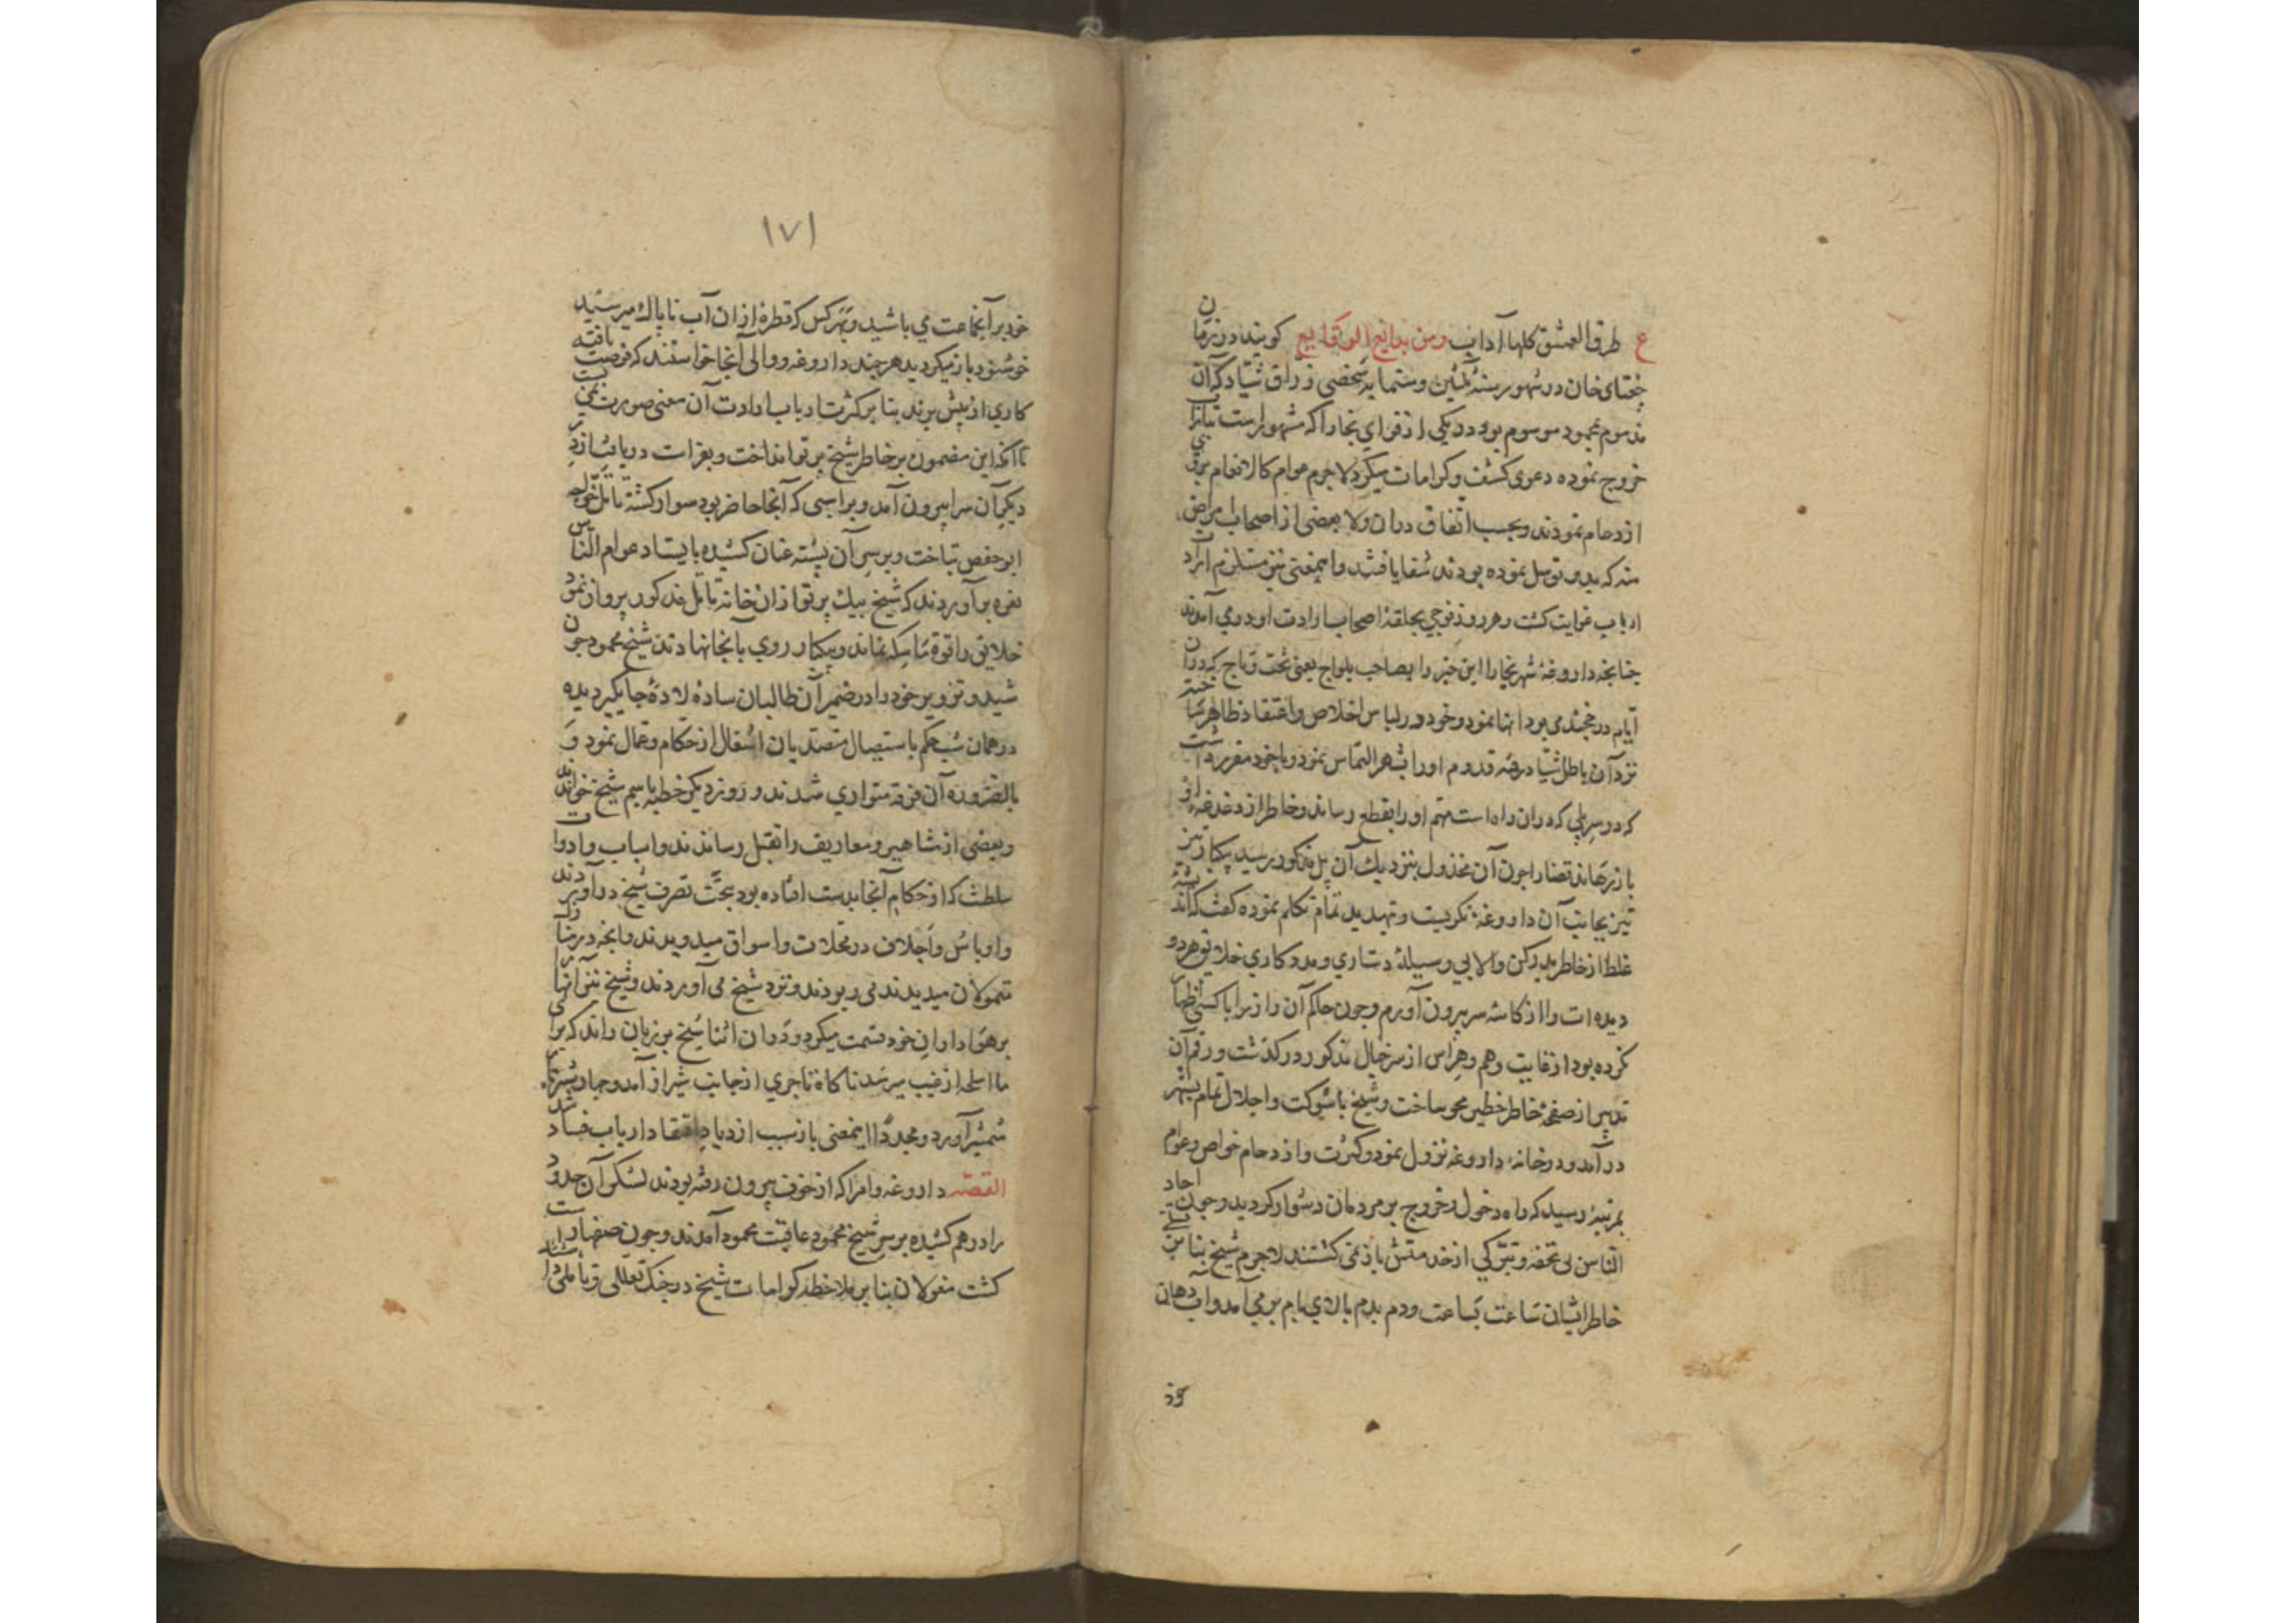 ع طرق العشق کلها آداب ومن بدایع الوقایع کویند در زمان
جغتای خان در شهور سنهٔ ثلثین وستمایه شخصی زراق شیاد که آن
مذموم بمحمود موسوم بود در یکی از قرای بخارا که مشهور است بتاراب
خروج نموده دعوی کشف وکرامات میکرد لاجرم عوام کالانعام برو
ازدحام نمودند وبحسب اتفاق دران ولا بعضی از اصحاب امراض
که بدو توسل نموده بودند شفا یافتند واینمعنی نیز مستلزم
ارباب غوایت کشت وهر روز فوجی بحلقهٔ اصحاب ارادت او در می آمدند
چنانچه داروغهٔ شهر بخارا این خبر را بصاحب یلواج یعنی که دران
ایام در خجند می بود انها نمود وخود در لباس اخلاص واعتقاد ظاهر ساخته
نزد آن باطل شیاد رفته قدوم او را بشهر التماس نمود وبا خود مقرر داشت
که در سر پلی که دران راه است مهم او را بقطع رساند وخاطر از دغدغهٔ او
باز رهاند قضا را چون آن مخذول بنزدیک آن پل مذکور رسید یکبار تیز
تیز بجانب آن داروغه نکریست وتهدید تمام تکلم نموده کفت که اندیشهٔ
غلط از خاطر بدر کن والا بی وسیلهٔ دستیاری ومددکاری خلایق هر دو
دیده ات را از کاسهٔ سر بیرون آورم وچون حاکم آن راز را با کسی اظهار
نکرده بود از غایت وهم وهراس از سر خیال مذکور در کذشت ورقم آن
تدبیر از صفحهٔ خاطر خطیر محو ساخت وشیخ با شوکت واجلال تمام بشهر
در آمد ودر خانهٔ داروغه نزول نمود وکثرت وازدحام خواص وعوام
بمرتبهٔ رسید که راه دخول وخروج بر مردمان دشوار کردید وچون احاد
الناس بی تحفه وتبرکی از خدمتش باز نمی کشتند لاجرم شیخ بنا بر تسلی
خاطر ایشان ساعت بساعت ودم بدم بالای بام بر می آمد وآب دهان
خود
۱۷۱
خود بر آنجماعت می پاشید وبهر کس که قطرهٔ ازان آب ناپاک میرسید
خوشنود باز میکردید هر چند داروغه ووالی آنجا خواستند که فرصت یافته
کاری از پیش برند بنا بر کثرت ارباب ارادت آن معنی صورت نمی بست
تا آنکه این مضمون بر خاطر شیخ پرتو انداخت وبفراست دریافت از در
دیکر آن سرا بیرون آمد وبر اسبی که آنجا حاضر بود سوار کشته تا تل خواجه
ابو حفص بتاخت وبر سر آن پشته عنان کشیده بایستاد عوام الناس
نعره بر آوردند که شیخ بیک پرتو ازان خانه تا تل مذکور پرواز نمود
خلایق را قوة ماسکه نماند ویکبار روی بآنجا نهادند شیخ محمود چون
شید وتزویر خود را در ضمیر آن طالبان ساده لاده جایکیر دیده
در همان شب حکم باستیصال متصدیان اشغال از حکام وعمال نمود و
بالضروره آن فرقه متواری شدند وروز دیکر خطبه باسم شیخ خواندند
وبعضی از مشاهیر ومعاریف را بقتل رساندند واسباب وادوات
سلطنت که از حکام آنجا بدست افتاده بود بتحت تصرف شیخ در آوردند
واوباش واجلاف در محلات واسواق میدویدند وآنچه در منازل
متمولان میدیدند می ربودند ونزد شیخ می آوردند وشیخ نیز آنها را
بر هواداران خود قسمت میکرد ودران اثنا شیخ بر زبان راند که برای
ما اسلحه از غیب میرسد ناکاه تاجری از جانب شیراز آمد وچهار
شمشیر آورد ومجددا اینمعنی باز سبب ازدیاد اعتقاد ارباب فساد شد
القصه داروغه وامرا که از خوف بیرون رفته بودند لشکر آن حدود
را در هم کشیده بر سر شیخ محمود عاقبت محمود آمدند وچون صفها راست
کشت مغولان بنا بر ملاحظه کرامات شیخ در جنک تعللی